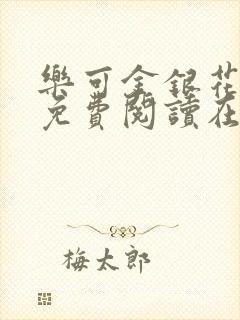 樂可金銀花
免費閱讀在
梅太郎